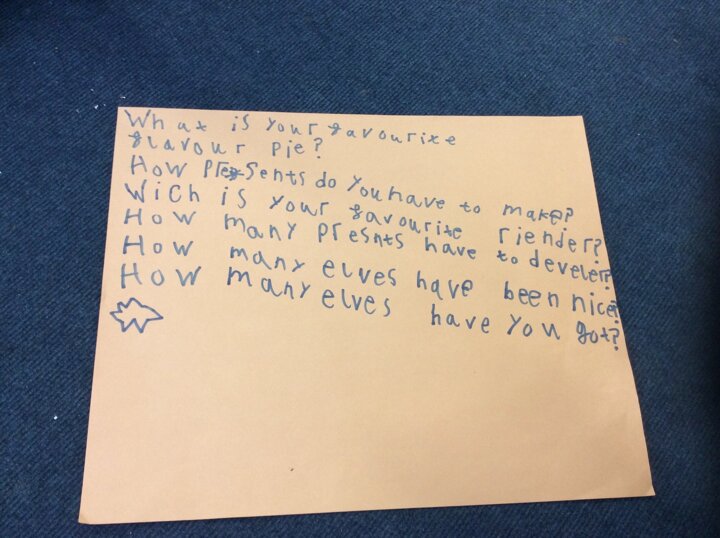 What is your favourite
flavour pie?
How presents do you have to make?
Wich is your favourite riender?
How many presnts have to develer?
How many elves have been nice?
How many elves have you got?